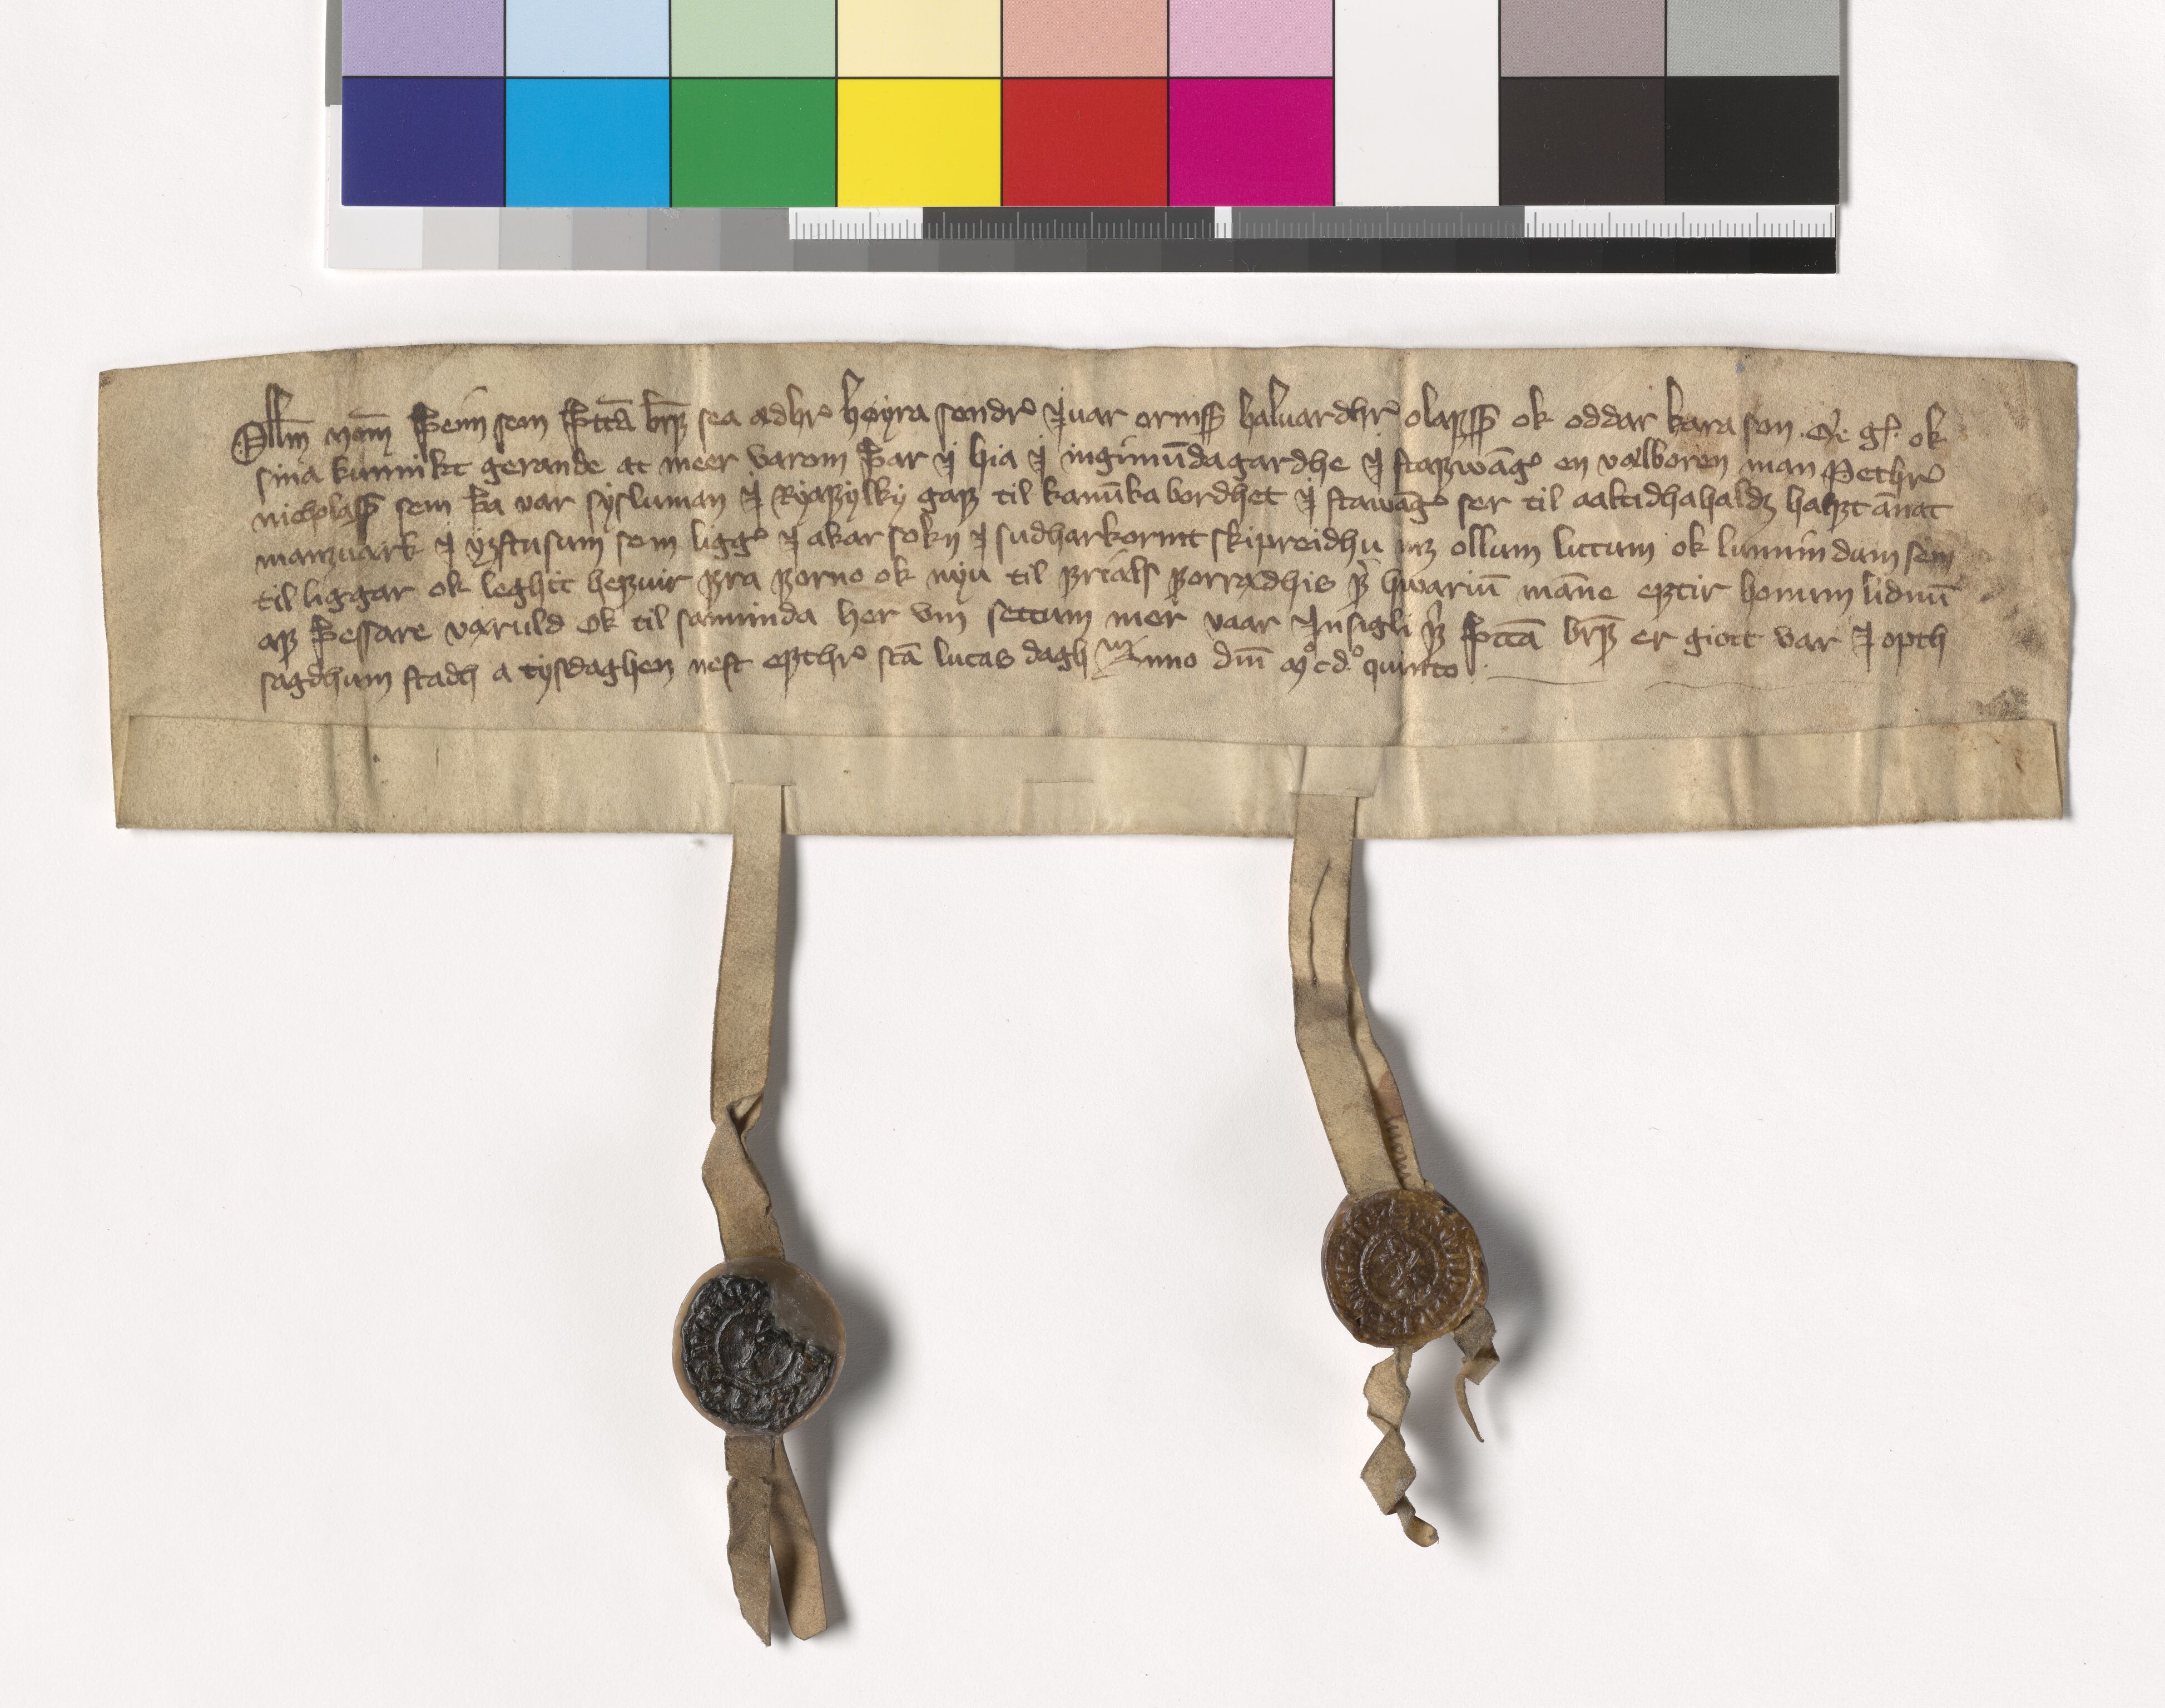 Ollm̄ mōm þeim sem þetta̅ breff sea ædhr høyra sendr Juar ormss haluardhr olafss ok oddar kara son .Q. g. ok
sina kunnikt gerande at meer varom þar ij hia ij ingimūdagardhe ij stafwāgr en vælboren man Pethr
nichlass sem þa var sysluman ij Ryafylky gaff til kanūka bordhet ij stawāgr ser til aaltidhahaldz halft ānat
manzuærk ij ystusum som liggr ij akar sokn ij sudharkormt skipreidhu mz ollum lutum ok lunnindum sem
til liggar ok leghit hefuir fra forno ok nyu til frials forrædhis fyr hwarium mānne eptir honum lidnum
af þessare væruld Ok til sanninda her vm settum mer vaar Jnsigli fyr þetta̅ breff er giort var ij opth
sagdhum stadh a tysdaghen nest efthr sc̄a lucas dagh Anno dnī mº cdº quinto